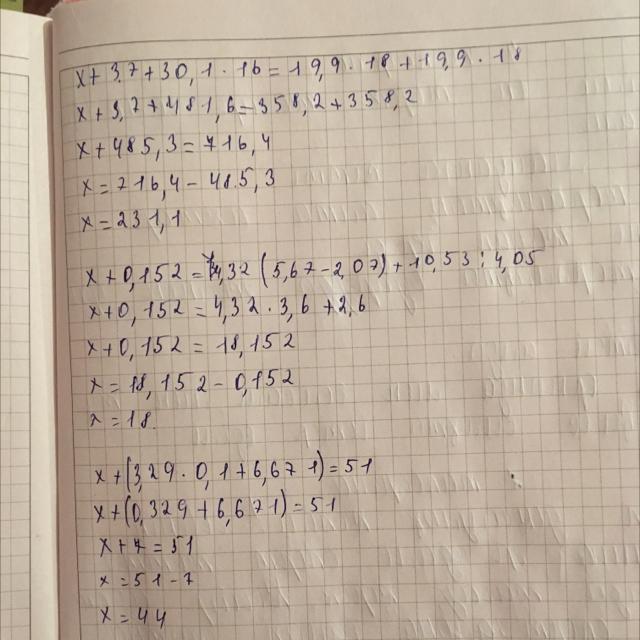 x+3,7+30,1·16=19,9·18+19,9·18
x+3,7+481,6=358,2+358,2
x+485,3=716,4
x=716,4-485,3
x=231,1
x+0,152=4,32(5,67-2,07)+10,53:4,05
x+0,152=4,32·3,6+2,6
x+0,152=18,152
x=18,152-0,152
x=18.
x+(3,29·0,1+6,671)=51
x+(0,329+6,671)=51
x+7=51
x=51-7
x=44